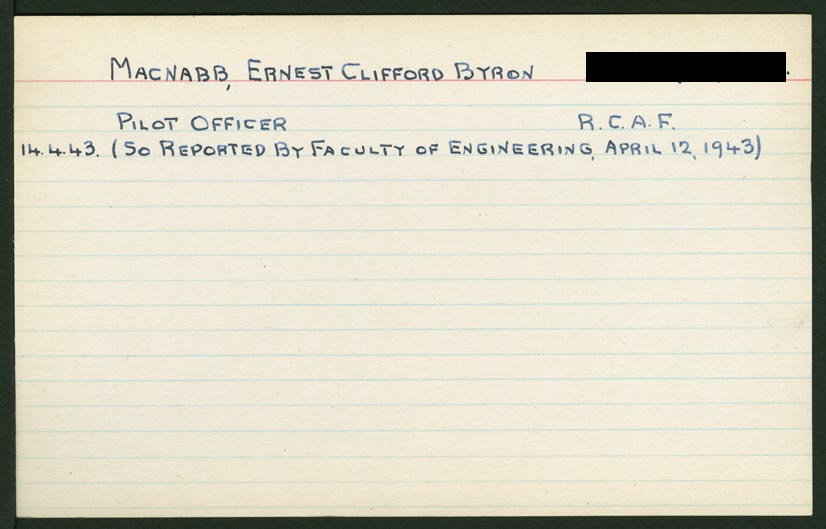 MACNABB, ERNEST CLIFFORD BYRON
PILOT OFFICER R.C.A.F.
14.4.43. (SO REPORTED BY FACULTY OF ENGINEERING, APRIL 12, 1943)